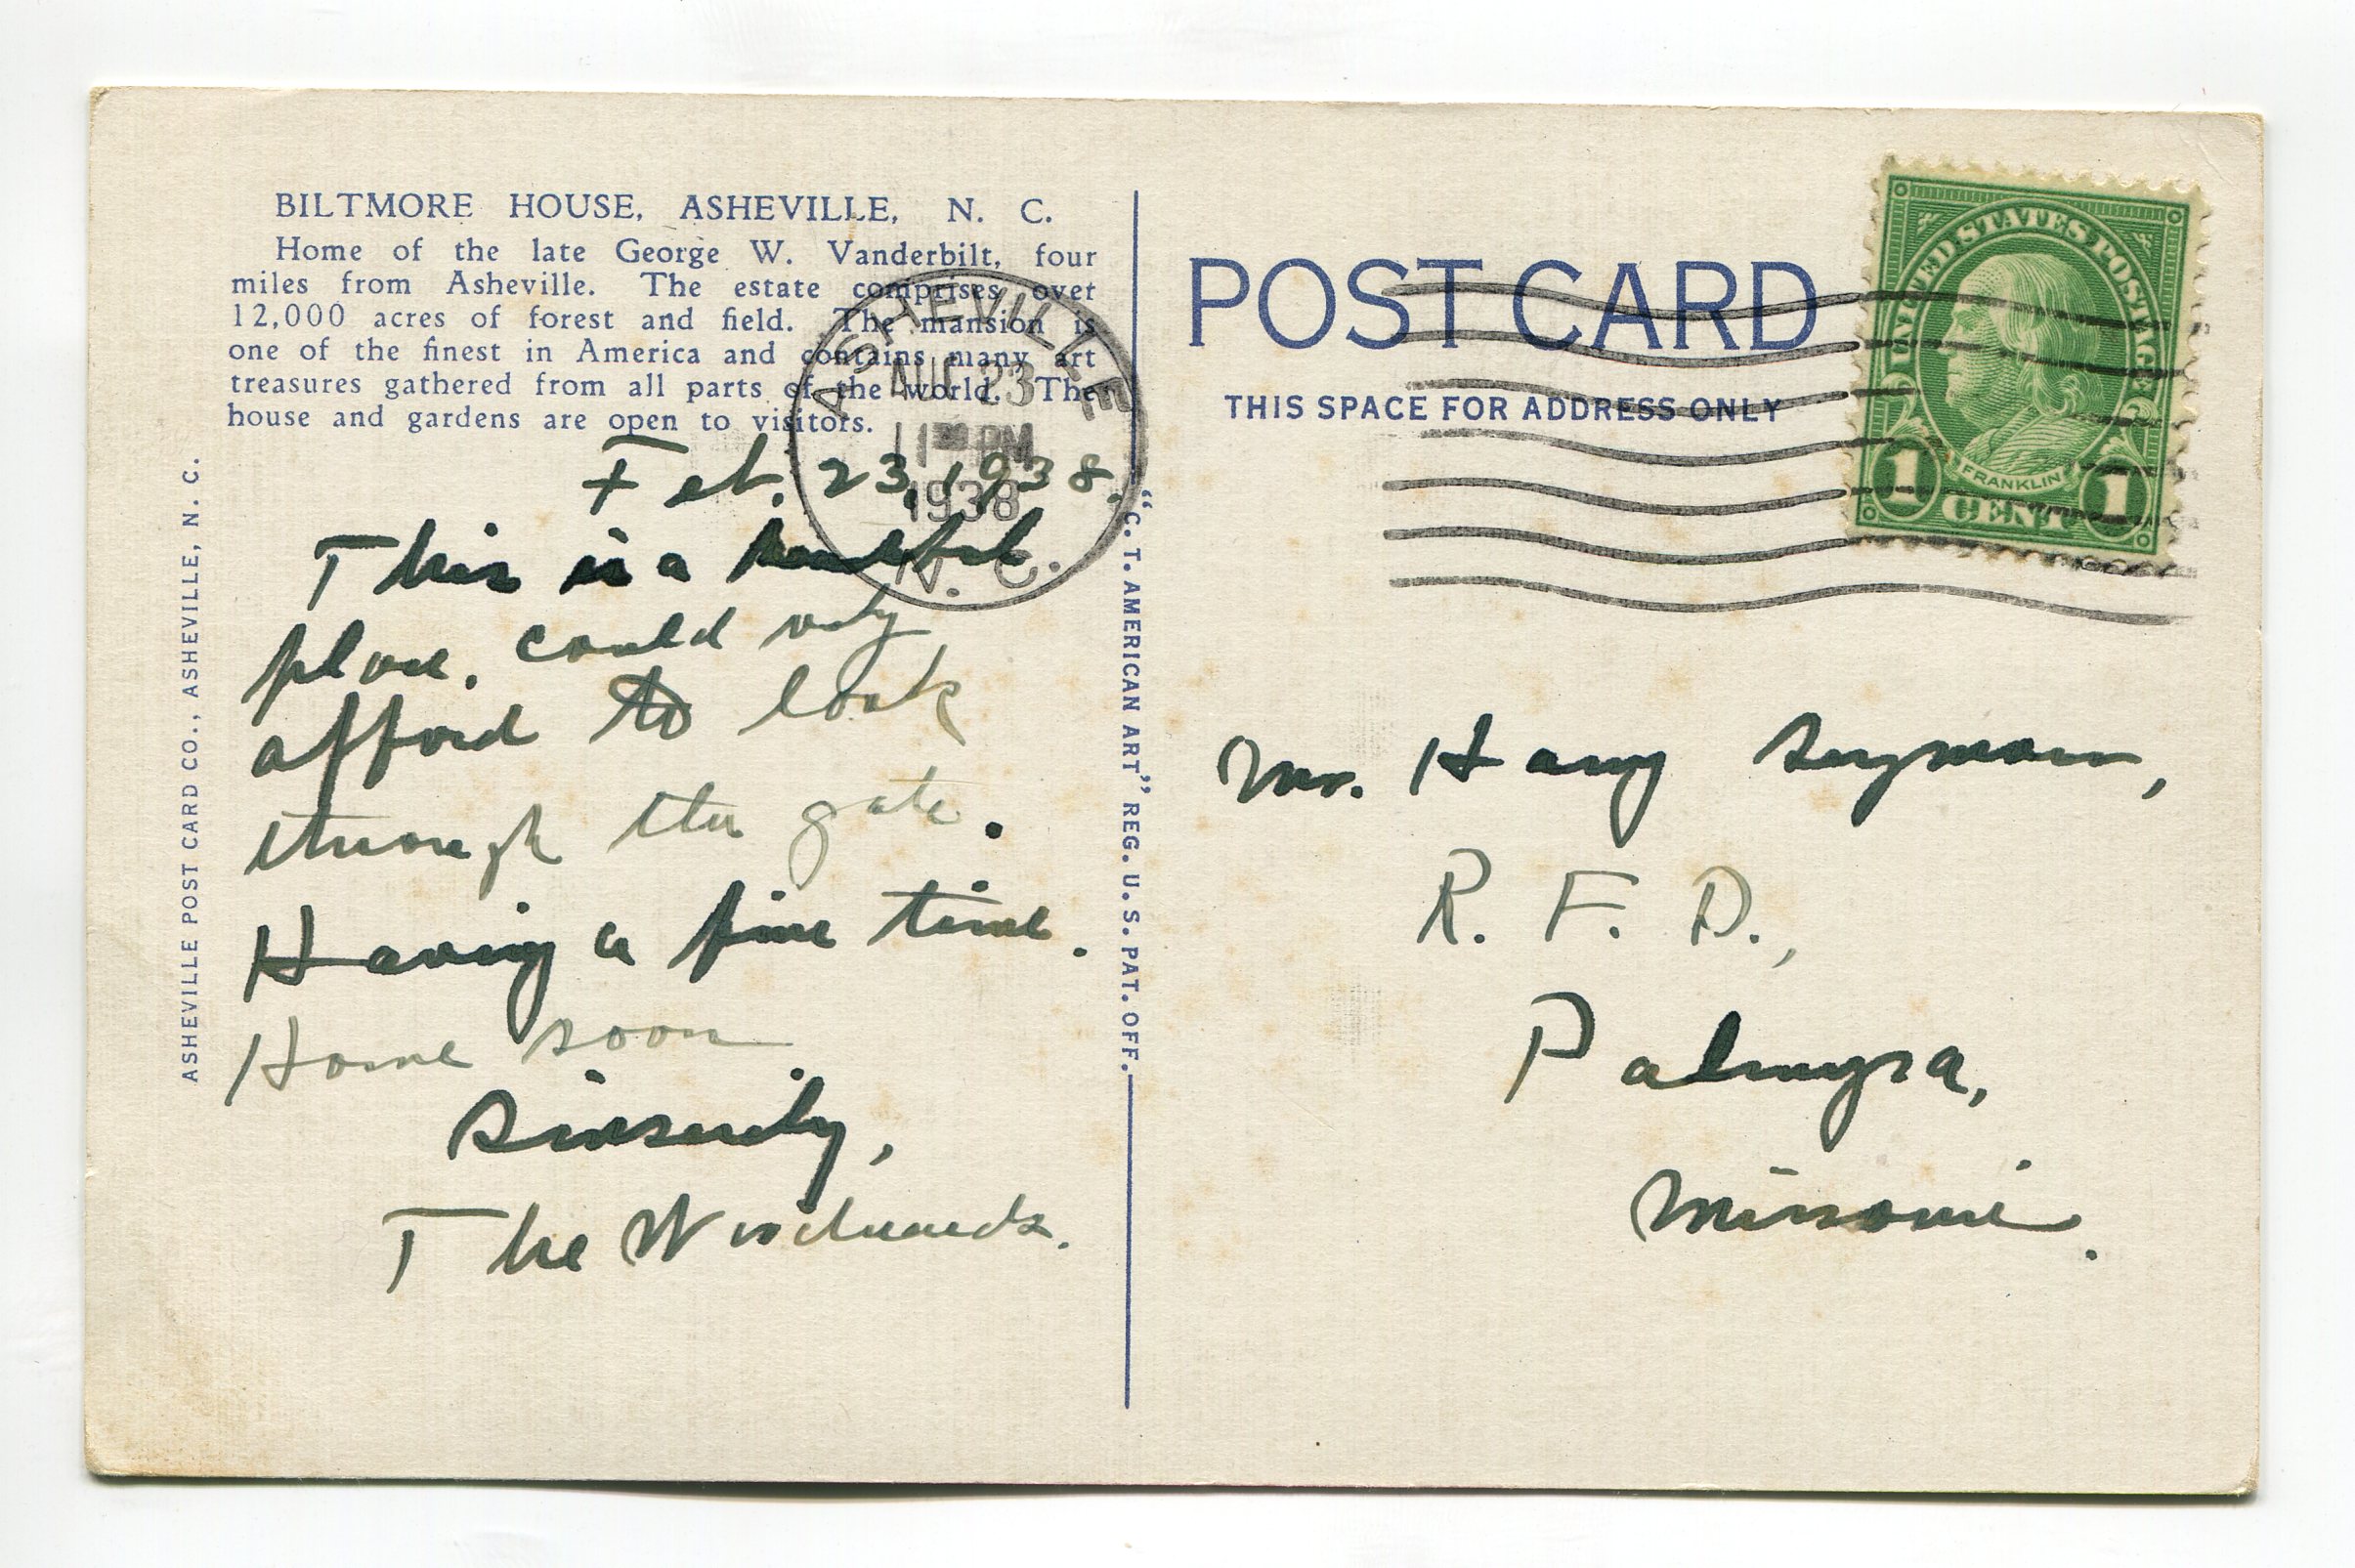 BILTMORE HOUSE, ASHEVILLE, N. C.
Home of the late George W. Vanderbilt, four
miles from Asheville. The estate comprises over
12,000 acres of forest and field. The mansion is
one of the finest in America and contains many art
treasures gathered from all parts of the world. The
house and gardens are open to visitors.
ASHEVILLE
AUG 23
PM
1938
N. C.
Feb. 23, 1938.
This is a beautiful
place. could only
afford to look
through the gate.
Having a fine time.
Home soon
Sincerely,
The
ASHEVILLE POST CARD CO., ASHEVILLE, N. C.
"C. T. AMERICAN ART" REG. U. S. PAT. OFF.
POST CARD
THIS SPACE FOR ADDRESS ONLY
UNITED STATES POSTAGE
FRANKLIN
1 CENT 1
Mr. Harry Seymour,
R. F. D.,
Palmyra,
Missouri.